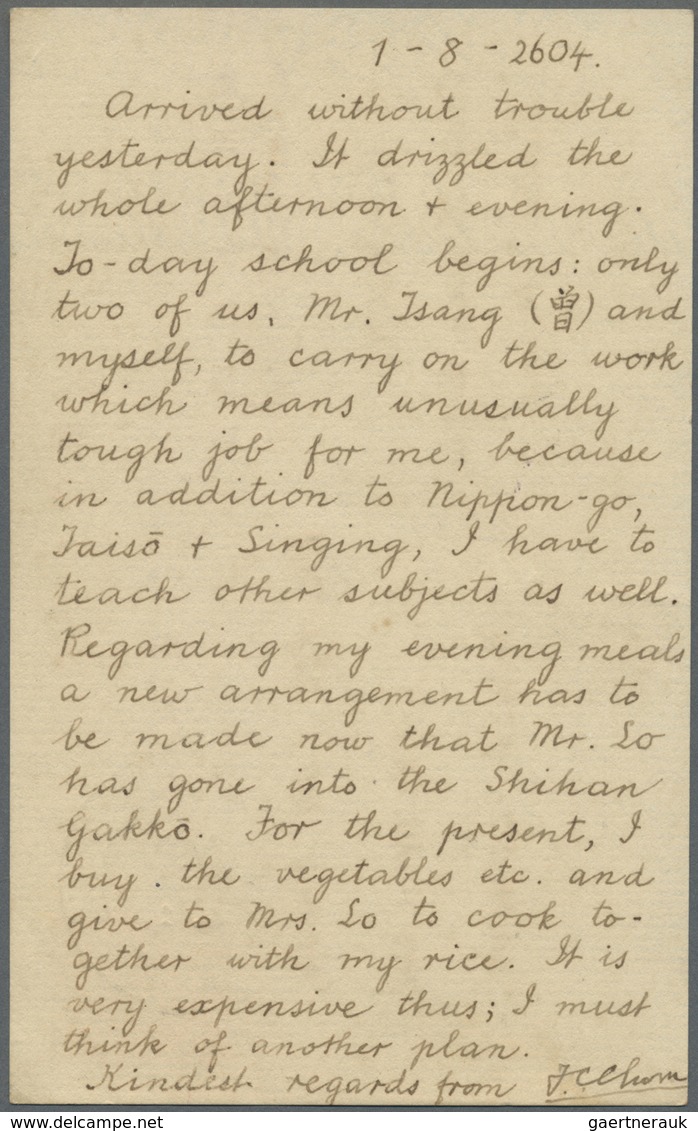 1 - 8 - 2604.
Arrived without trouble
yesterday. It drizzled the
whole afternoon + evening.
To-day school begins: only
two of us, Mr. Tsang (曾) and
myself, to carry on the work
which means unusually
tough job for me, because
in addition to Nippon-go,
Taisō + Singing, I have to
teach other subjects as well.
Regarding my evening meals
a new arrangement has to
be made now that Mr. Lo
has gone into the Shihan
Gakkō. For the present, I
buy the vegetables etc. and
give to Mrs. Lo to cook to-
gether with my rice. It is
very expensive thus; I must
think of another plan.
Kindest regards from
DELCAMPE.NET
gaertnerauk